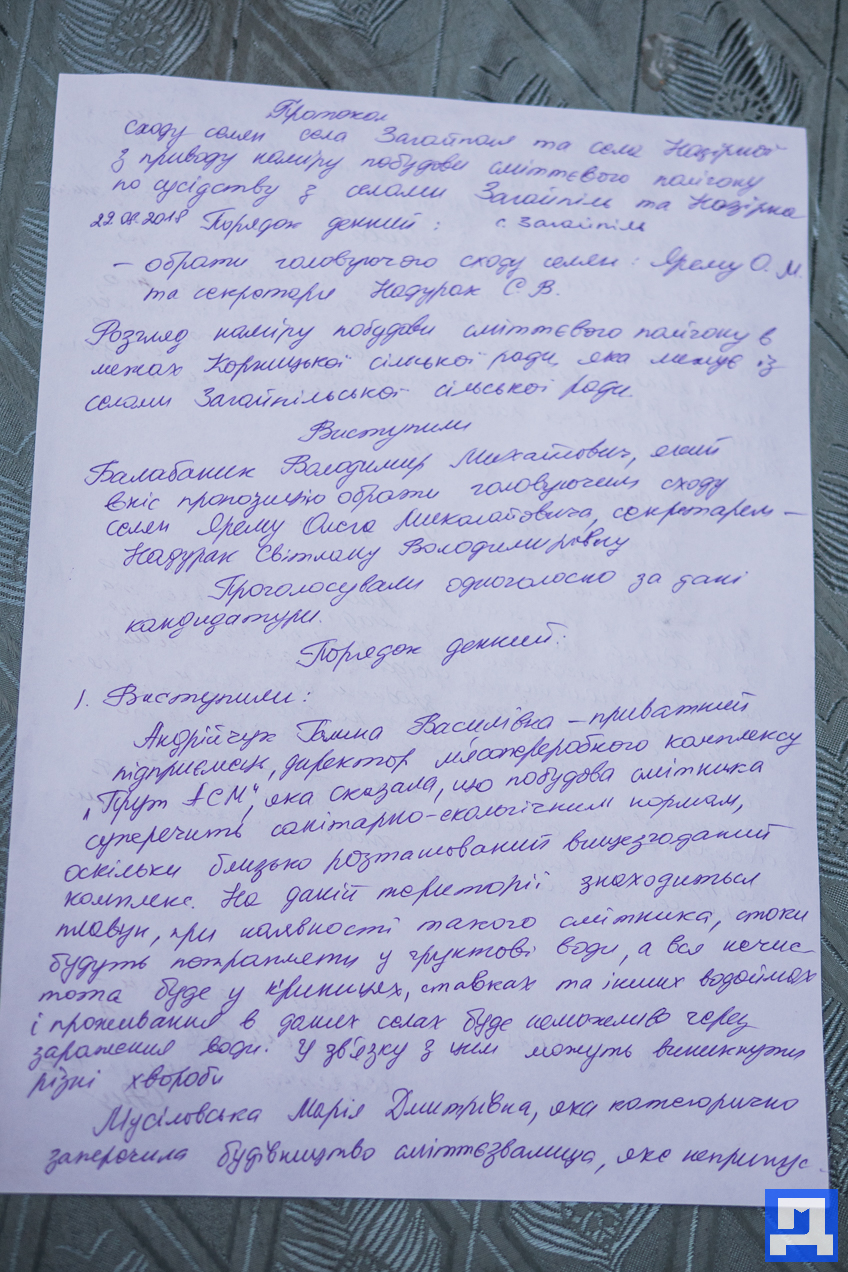 Протокол
сходу селян села Загайполя та села Назірної
з приводу наміру побудови сміттєвого полігону
по сусідству з селами Загайпіль та Назірна
22.08.2018 Порядок денний: с. Загайпіль
– обрати головуючого сходу селян: Ярему О. М.
та секретаря Надурак С. В.
Розгляд наміру побудови сміттєвого полігону в
межах Коршицької сільської ради, яка межує із
селами Загайпільської сільської ради.
Виступили
Балабаник Володимир Михайлович, який
вніс пропозицію обрати головуючим сходу
селян Ярему Олега Миколайовича, секретарем –
Надурак Світлану Володимирівну
Проголосували одноголосно за дані
кандидатури.
Порядок денний:
1. Виступили:
Андрійчук Галина Василівна – приватний
підприємець, директор м'ясопереробного комплексу
„Прут АСМ", яка сказала, що побудова смітника
суперечить санітарно-екологічним нормам,
оскільки близько розташований вищезгаданий
комплекс. На даній території знаходиться
плавун, при наявності такого смітника, стоки
будуть потрапляти у грунтові води, а вся нечис-
тота буде у криницях, ставках та інших водоймах
і проживання в даних селах буде неможливо через
зараження води. У зв'язку з цим можуть виникнути
різні хвороби
Мусіловська Марія Дмитрівна, яка категорично
заперечила будівництво сміттєзвалища, яке неприпус-